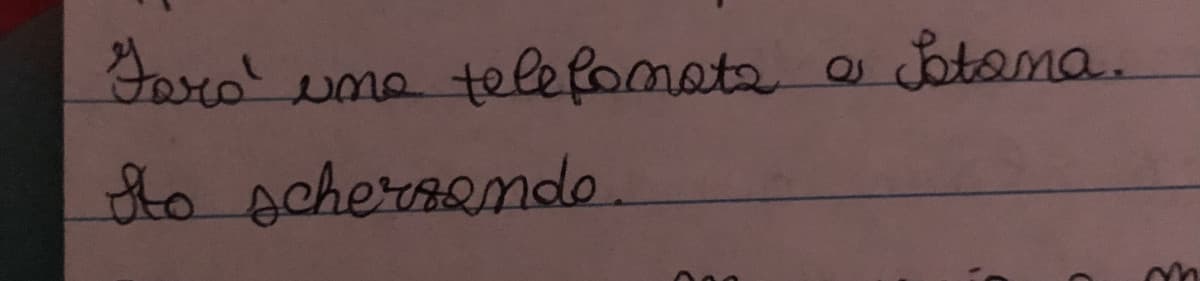 Farò una telefonata a Satana.
Sto scherzando.